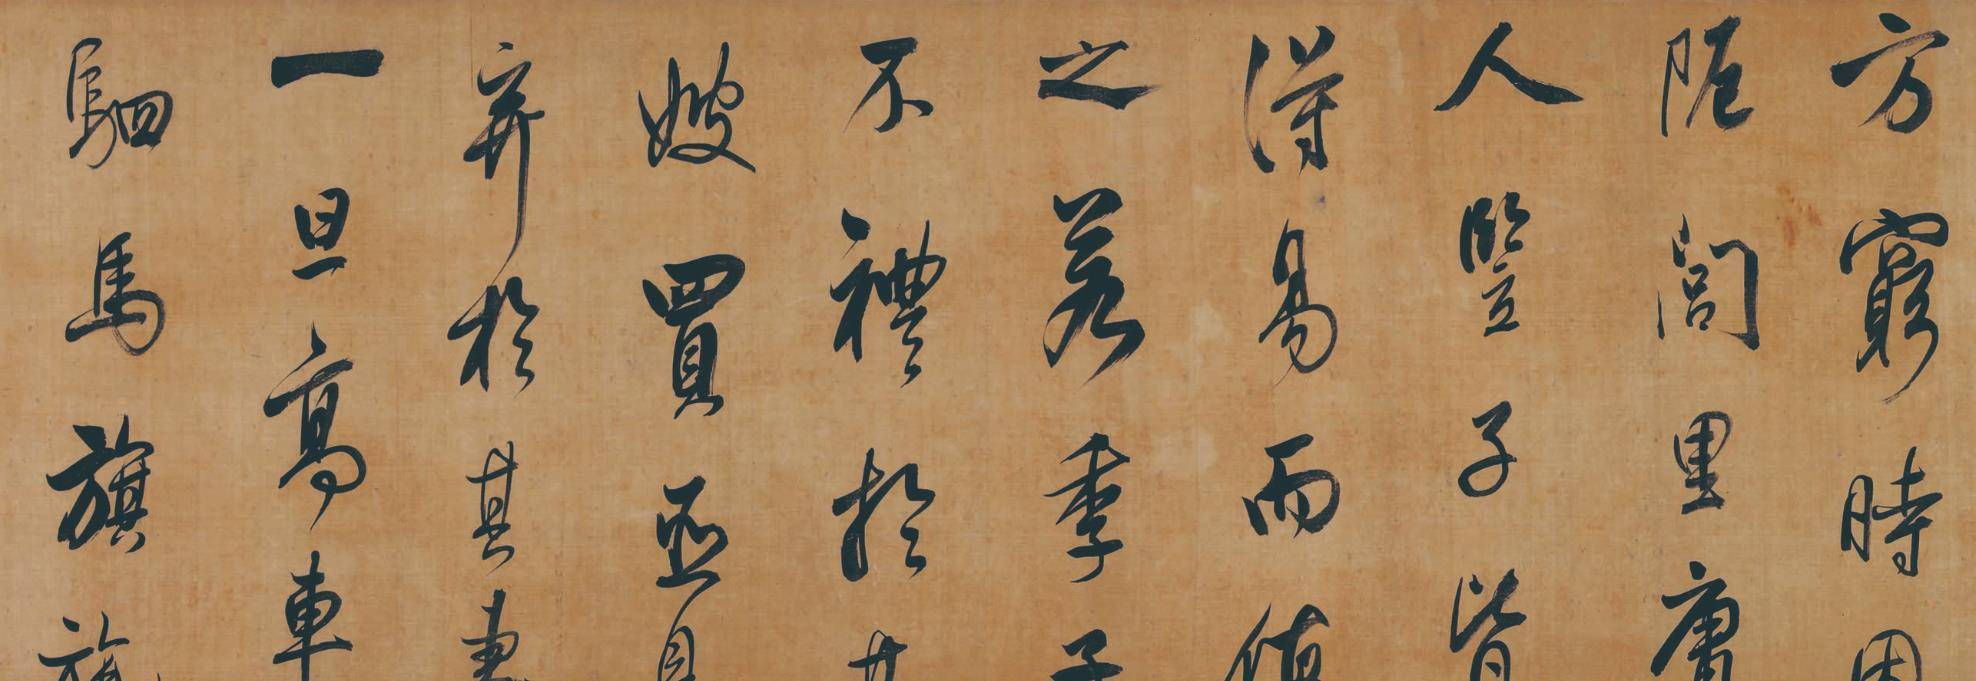 方窮時困
阨閭里庸
人豎子皆
得易而侮
之若季子
不禮於其
嫂買臣見
棄於其妻
一旦高車
駟馬旗旄